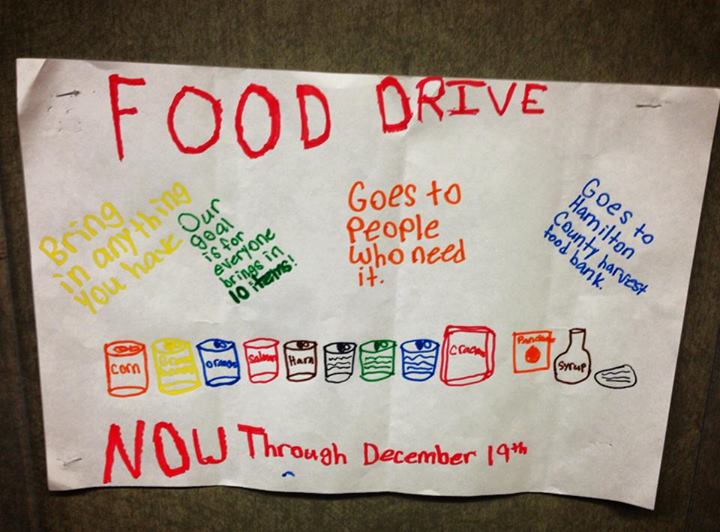 FOOD DRIVE
Bring
in anything
you have
Our
goal
is for
everyone
brings in
10 items!
Goes to
People
who need
it.
Goes to
Hamilton
County harvest
food bank.
Corn
Salmon
Ham
Syrup
NOW Through December 19th